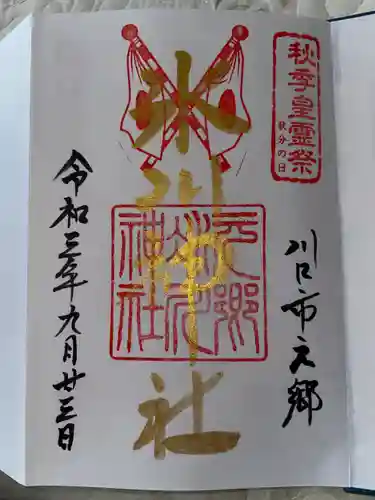 秋季皇霊祭
秋分の日
川口市元郷
氷川神社
元郷
氷川
神社
令和三年九月廿三日